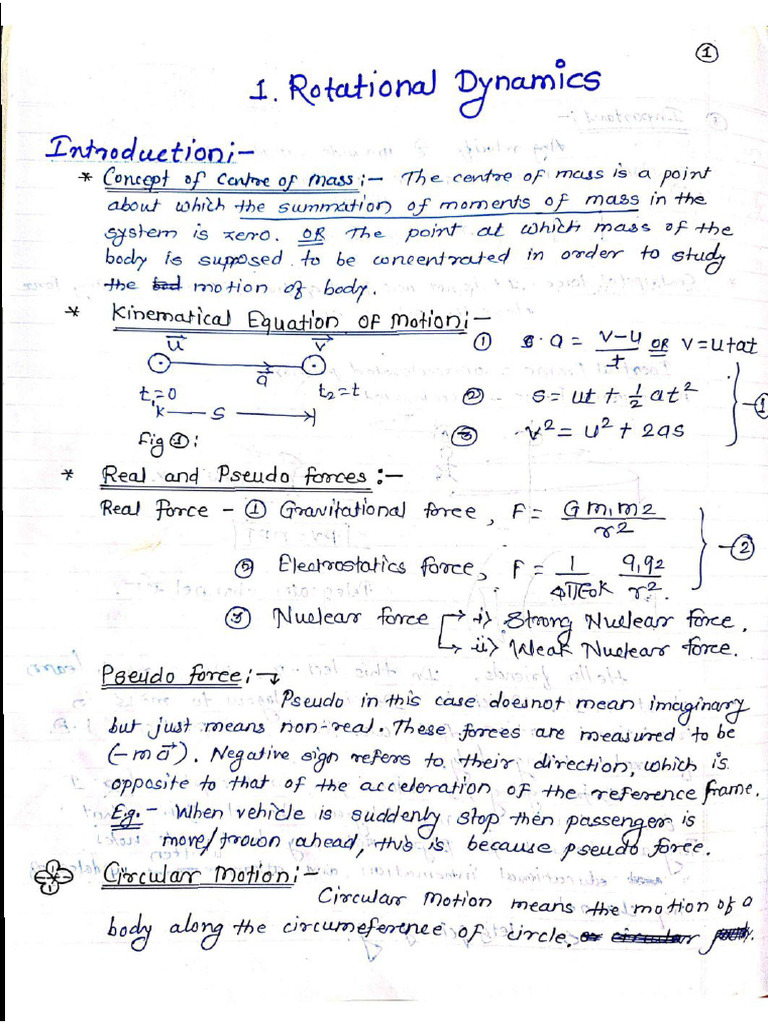 ①
1. Rotational Dynamics
Introduction:-
* Concept of Centre of Mass:- The centre of mass is a point
about which the summation of moments of mass in the
system is zero. OR The point at which mass of the
body is supposed to be concentrated in order to study
the motion of body.
* Kinematical Equation of Motion:-
u⃗ v⃗ a⃗
① a = (v-u)/t OR v=u+at
t₁=0 t₂=t
② s = ut + ½ at²
S
③ v² = u² + 2as
-①
Fig ①:
* Real and Pseudo forces:-
Real force - ① Gravitational force, F = Gm₁m₂/r²
② Electrostatics force, F = 1/4πε₀k q₁q₂/r².
-②
③ Nuclear force → i) Strong Nuclear force.
→ ii) Weak Nuclear force.
Pseudo force:- ↴
Pseudo in this case doesnot mean imaginary
but just means non-real. These forces are measured to be
(-ma⃗). Negative sign refers to their direction, which is
opposite to that of the acceleration of the reference frame.
Eg.- When vehicle is suddenly stop then passenger is
move/trown ahead, this is because pseudo force.
Circular Motion:-
Circular Motion means the motion of a
body along the circumeference of circle.